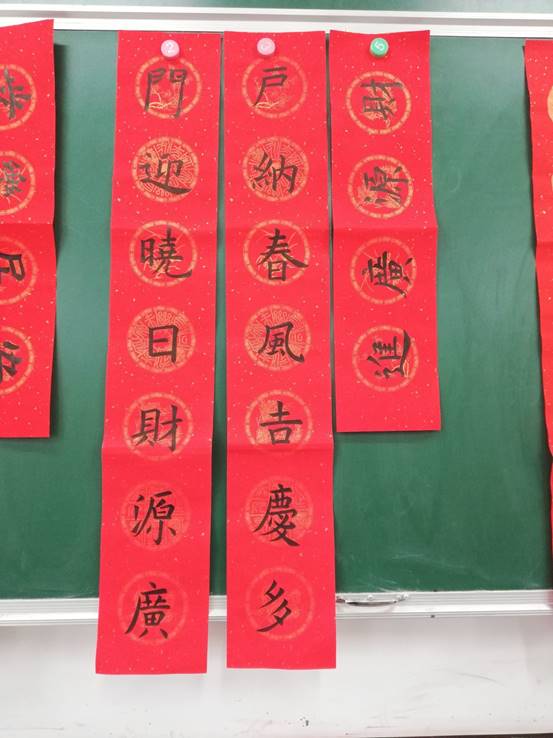 門迎曉日財源廣
戶納春風吉慶多
財源廣進